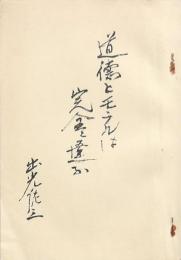 道徳とモラルは
完全に違う
出光佐三